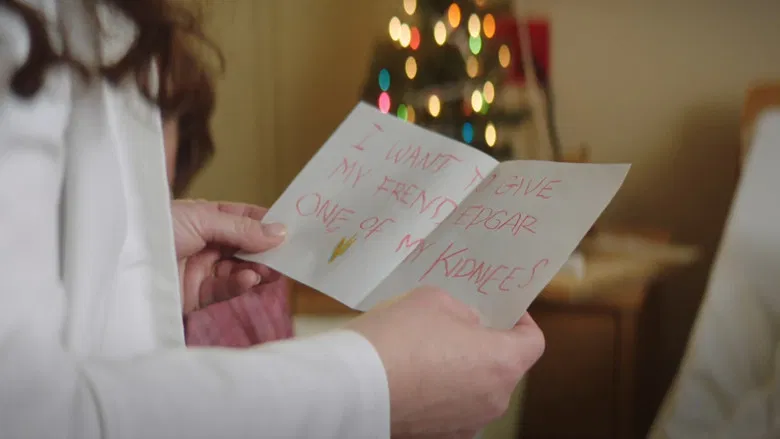 I WANT TO GIVE
MY FREND EDGAR
ONE OF MY KIDNEES